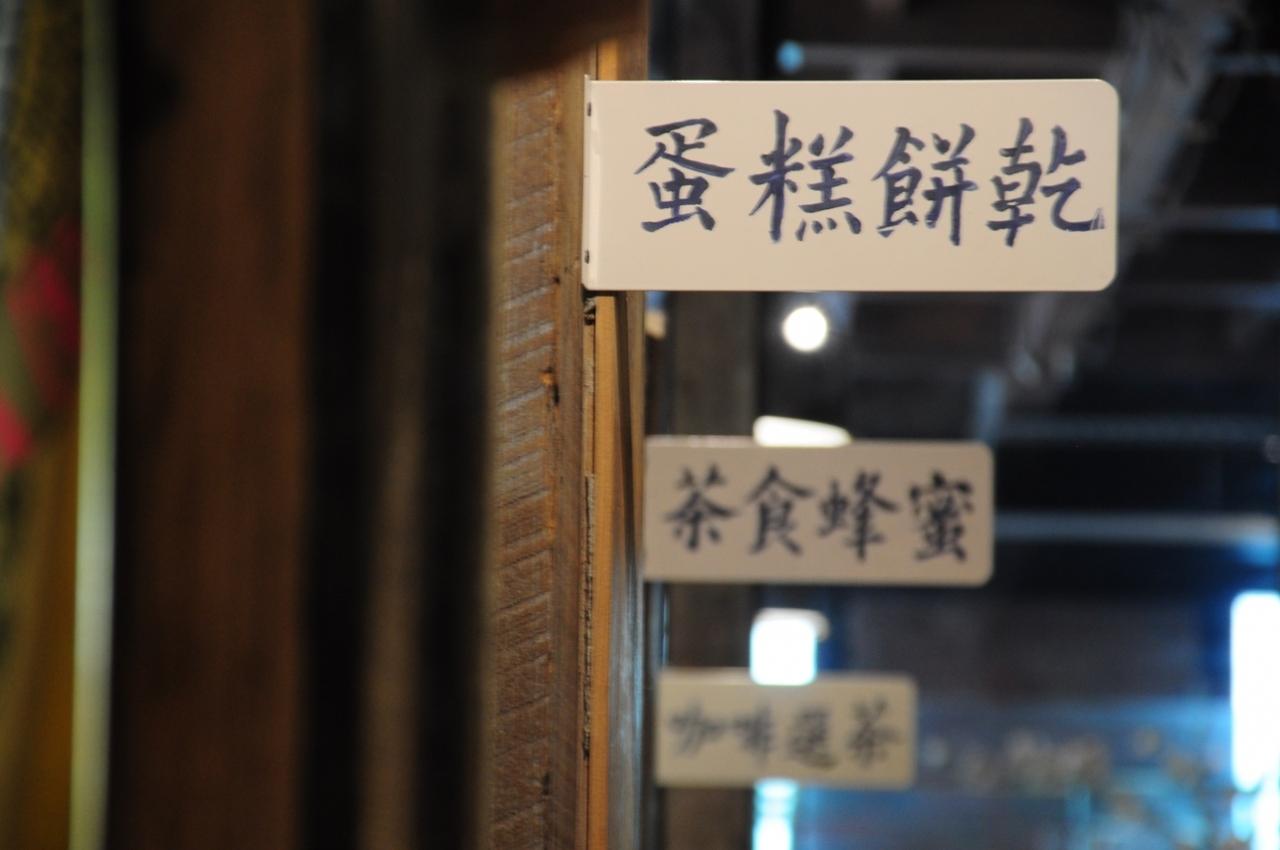 蛋糕餅乾
茶食蜂蜜
咖啡選茶